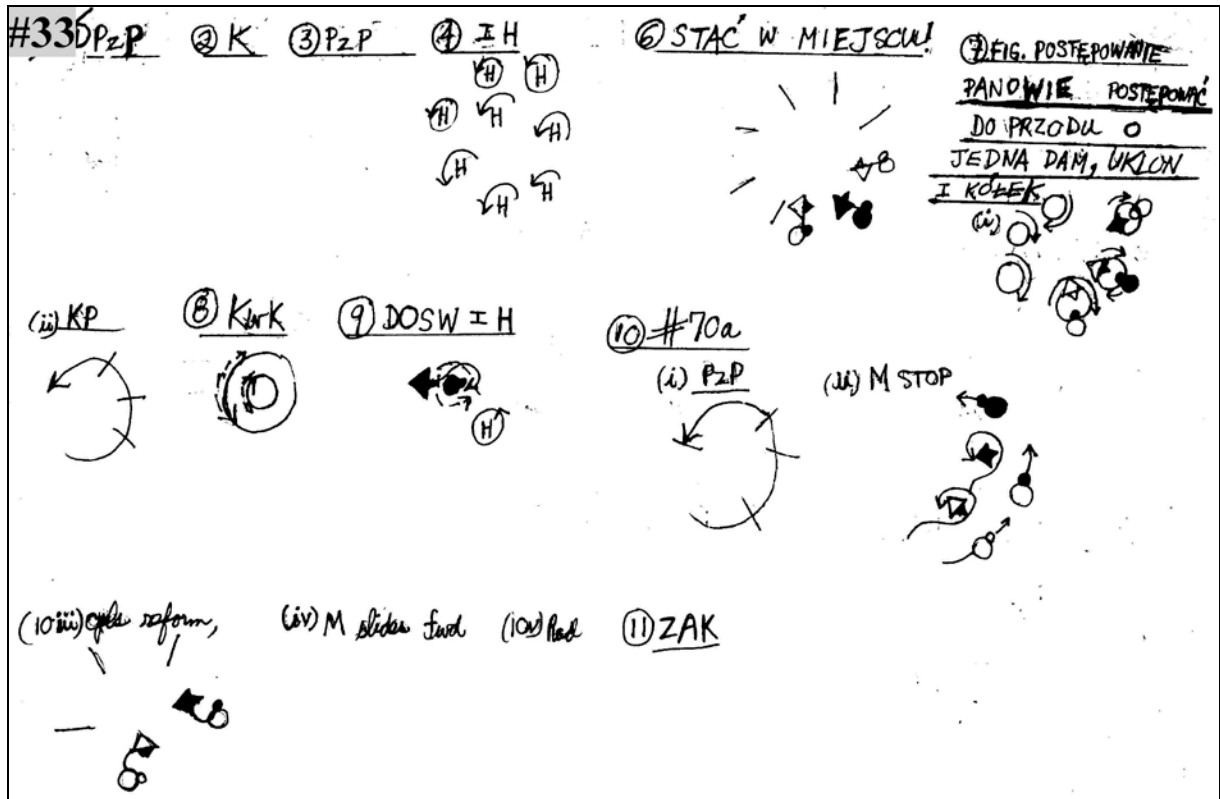 #33
PzP ② K ③ PzP ④ I H ⑥ STAĆ W MIEJSCU!
H H
H H H
H H H
⑦ FIG. POSTĘPOWANIE
PANOWIE POSTĘPOWAĆ
DO PRZODU O
JEDNA DAM, UKLON
I KÓŁEK
(i)
(ii) KP ⑧ KwK ⑨ DOSW I H
H
⑩ #70a
(i) PzP (ii) M STOP
(10iii) cpls reform, (iv) M slides fwd (10v) Rod ⑪ ZAK